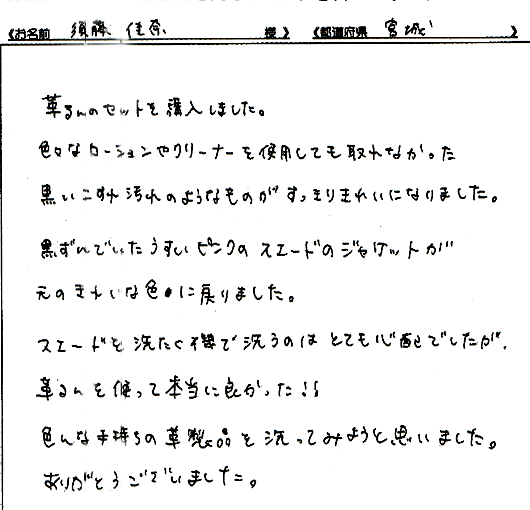 《お名前 須藤 佳奈 様》 《都道府県 宮城 》
革るんのセットを購入しました。
色々なローションやクリーナーを使用しても取れなかった
黒いこすれ汚れのようなものがすっきりきれいになりました。
黒ずんでいたうすいピンクのスエードのジャケットが
元のきれいな色に戻りました。
スエードを洗たく機で洗うのはとても心配でしたが、
革るんを使って本当に良かった!!
色んな手持ちの革製品を洗ってみようと思いました。
ありがとうございました。